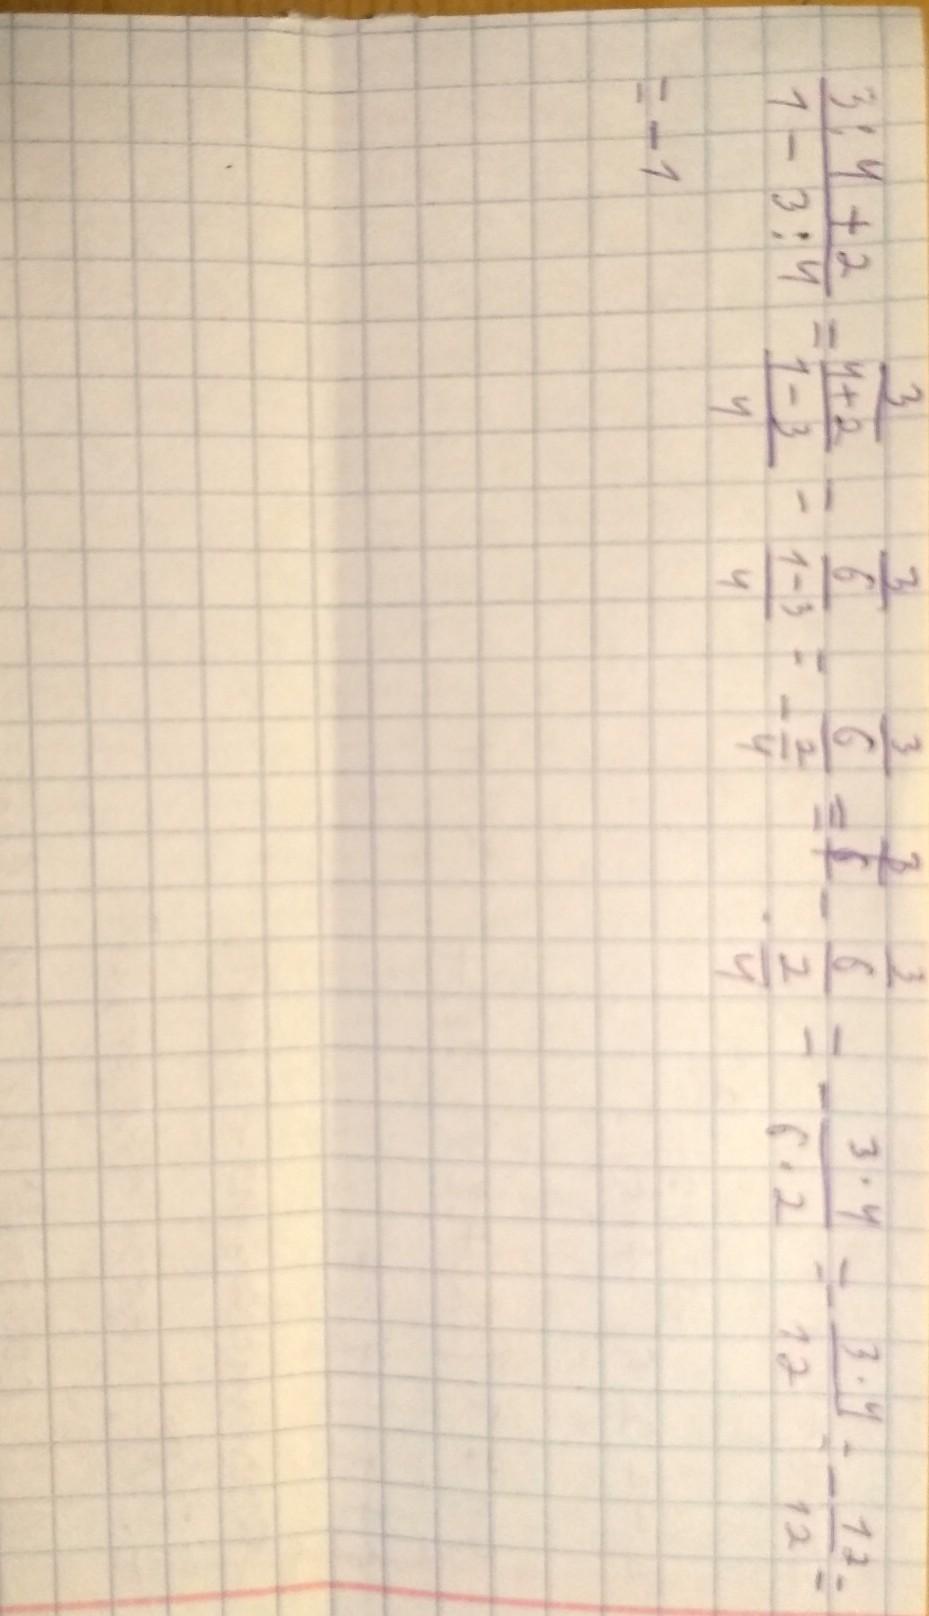 (3:4+2)/(1-3:4) = (3/(4+2))/((1-3)/4) = (3/6)/((1-3)/4) = (3/6)/(-2/4) = - (3/6)/(2/4) = - (3·4)/(6·2) = - (3·4)/12 = - 12/12 =
= -1